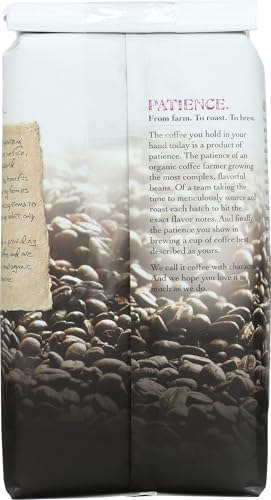 PATIENCE.
From farm. To roast. To brew.
The coffee you hold in your
hand today is a product of
patience. The patience of an
organic coffee farmer growing
the most complex, flavorful
beans. Of a team taking the
time to meticulously source and
roast each batch to hit the
exact flavor notes. And finally
the patience you show in
brewing a cup of coffee best
described as yours.
We call it coffee with charact
And we hope you love it as
much as we do.
benefits
farms